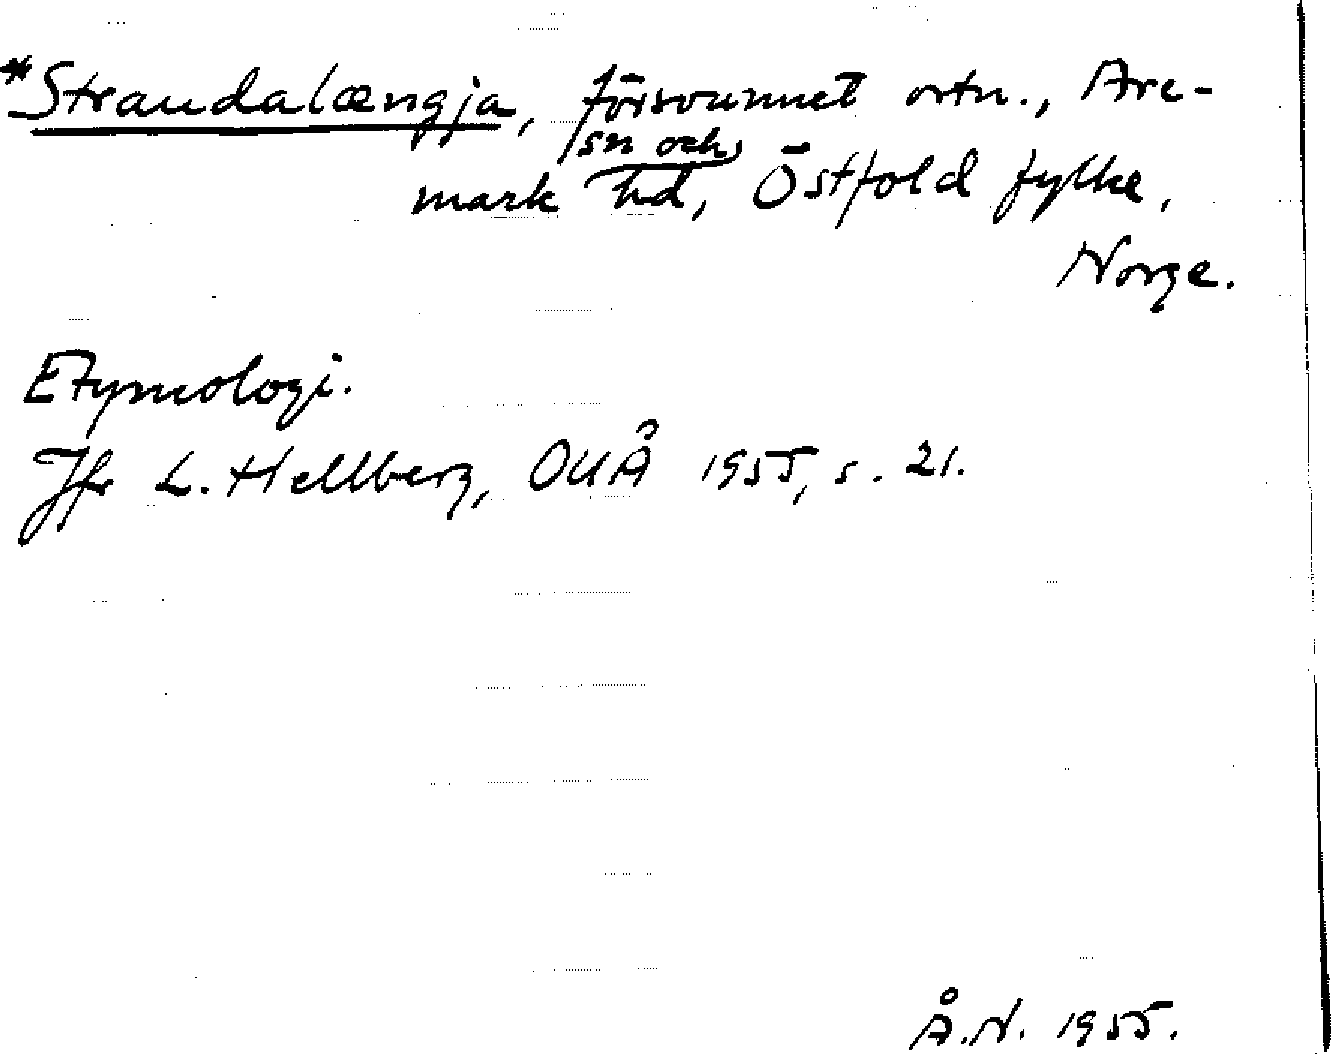 *Strandalængja, försvunnet ortn., Are-
mark sn och hd, Östfold fylke,
Norge.
Etymologi.
Jfr L. Hellberg, OUÅ 1955, s. 21.
Å.N. 1955.